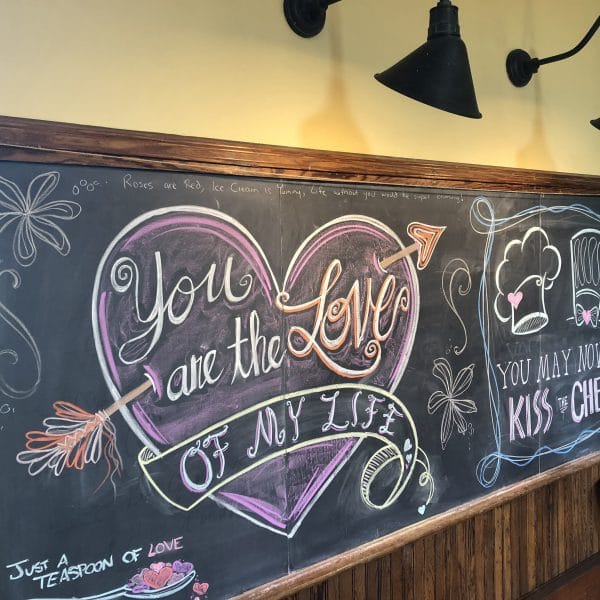 Roses are Red, Ice Cream is Yummy, Life without you would be super crummy!
You
are the Love
OF MY LIFE
YOU MAY NOW
KISS THE CHE
JUST A
TEASPOON OF LOVE